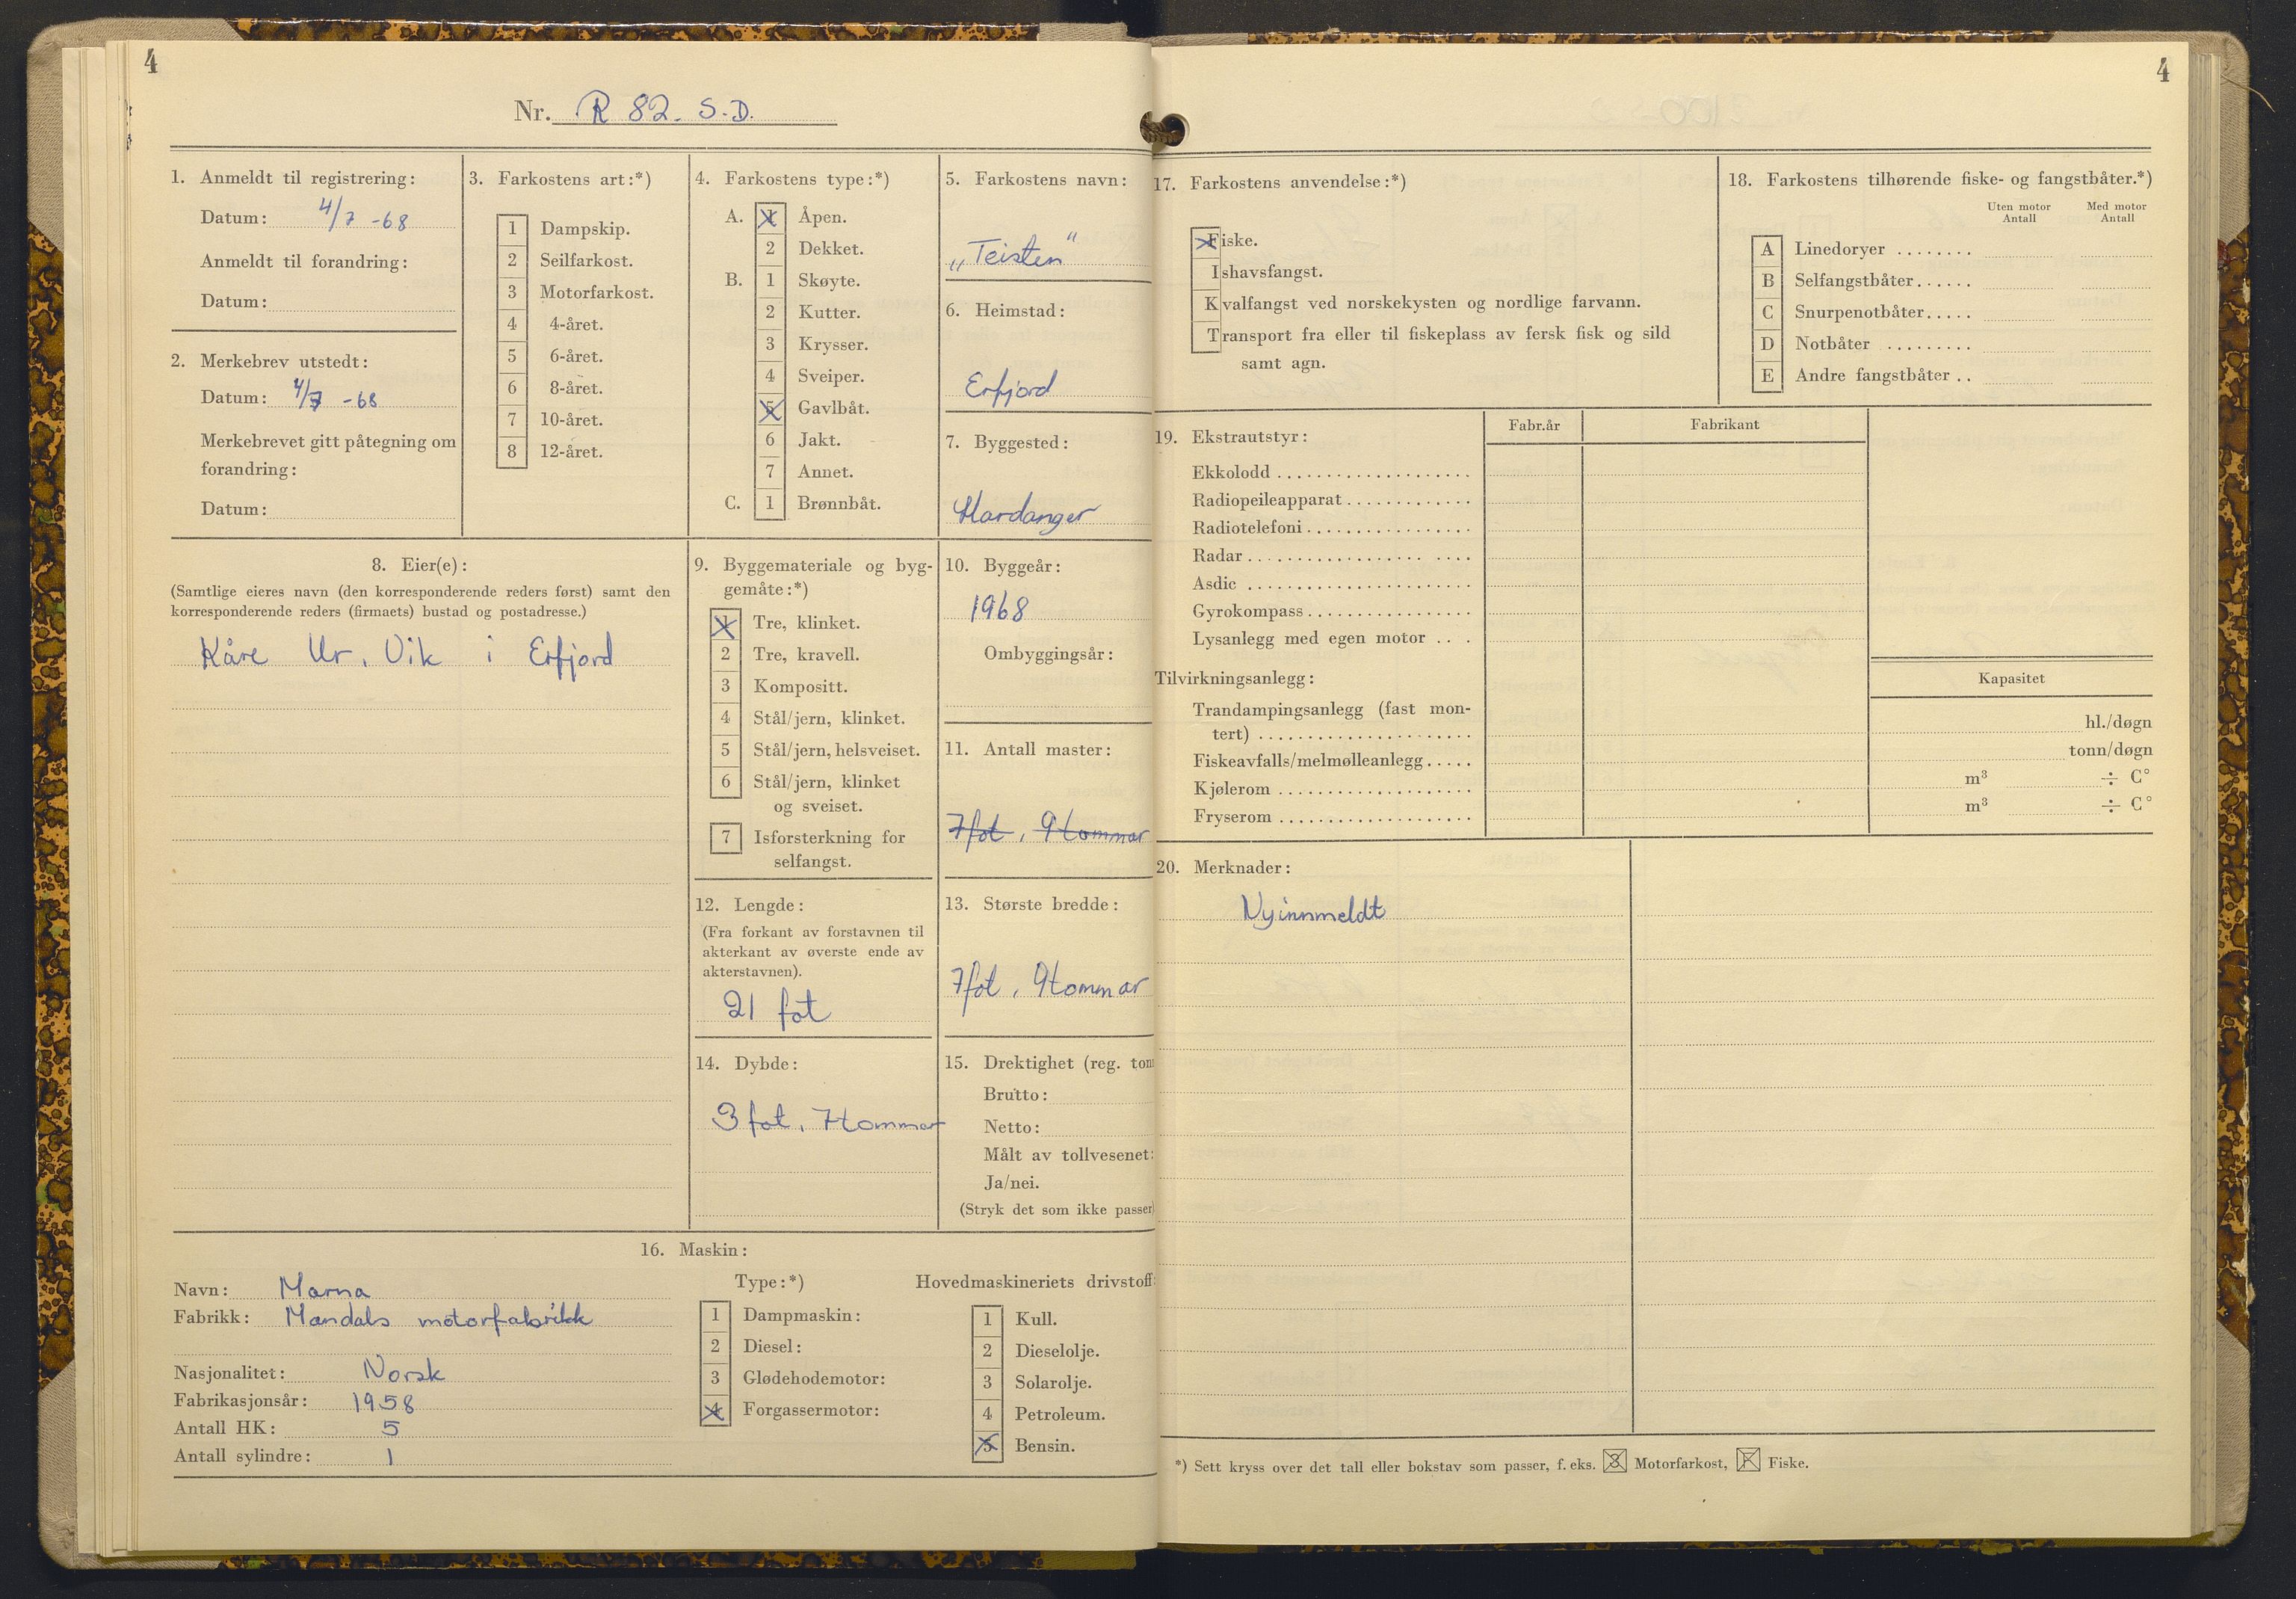 4
Nr. R 82. S.D.
1. Anmeldt til registrering:
Datum: 4/7 -68
Anmeldt til forandring:
Datum:
2. Merkebrev utstedt:
Datum: 4/7 -68
Merkebrevet gitt påtegning om
forandring:
Datum:
3. Farkostens art:*)
1 Dampskip.
2 Seilfarkost.
3 Motorfarkost.
4 4-året.
5 6-året.
6 8-året.
7 10-året.
8 12-året.
4. Farkostens type:*)
A. 1 Åpen.
2 Dekket.
B. 1 Skøyte.
2 Kutter.
3 Krysser.
4 Sveiper.
5 Gavlbåt.
6 Jakt.
7 Annet.
C. 1 Brønnbåt.
5. Farkostens navn:
„Teisten"
6. Heimstad:
Erfjord
7. Byggested:
Hardanger
8. Eier(e):
(Samtlige eieres navn (den korresponderende reders først) samt den
korresponderende reders (firmaets) bustad og postadresse.)
Kåre Ur. Vik i Erfjord
9. Byggemateriale og byg-
gemåte:*)
1 Tre, klinket.
2 Tre, kravell.
3 Kompositt.
4 Stål/jern, klinket.
5 Stål/jern, helsveiset.
6 Stål/jern, klinket
og sveiset.
7 Isforsterkning for
selfangst.
10. Byggeår:
1968
Ombyggingsår:
11. Antall master:
7 fot, 9 tommar
12. Lengde:
(Fra forkant av forstavnen til
akterkant av øverste ende av
akterstavnen).
21 fot
13. Største bredde:
7 fot, 9 tommar
14. Dybde:
3 fot, 7 tommar
15. Drektighet (reg. ton
Brutto:
Netto:
Målt av tollvesenet:
Ja/nei.
(Stryk det som ikke passer)
16. Maskin:
Navn: Marna
Fabrikk: Mandals motorfabrikk
Nasjonalitet: Norsk
Fabrikasjonsår: 1958
Antall HK: 5
Antall sylindre: 1
Type:*)
1 Dampmaskin:
2 Diesel:
3 Glødehodemotor:
4 Forgassermotor:
Hovedmaskineriets drivstoff:
1 Kull.
2 Dieselolje.
3 Solarolje.
4 Petroleum.
5 Bensin.
4
17. Farkostens anvendelse:*)
Fiske.
Ishavsfangst.
Kvalfangst ved norskekysten og nordlige farvann.
Transport fra eller til fiskeplass av fersk fisk og sild
samt agn.
18. Farkostens tilhørende fiske- og fangstbåter.*)
Uten motor Med motor
Antall Antall
A Linedoryer ........
B Selfangstbåter......
C Snurpenotbåter.....
D Notbåter .........
E Andre fangstbåter ..
19. Ekstrautstyr:
Fabr.år Fabrikant
Ekkolodd ....................
Radiopeileapparat.............
Radiotelefoni.................
Radar .................. ....
Asdic .......................
Gyrokompass.................
Lysanlegg med egen motor ...
Tilvirkningsanlegg:
Kapasitet
Trandampingsanlegg (fast mon-
tert) ...................... hl./døgn
Fiskeavfalls/melmølleanlegg..... tonn/døgn
Kjølerom .................... m³ ÷ C°
Fryserom .................... m³ ÷ C°
20. Merknader:
Nyinnmeldt
*) Sett kryss over det tall eller bokstav som passer, f. eks. 3 Motorfarkost, F Fiske.